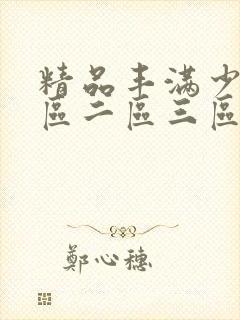 精品丰滿少
區二區三區
鄭心穗